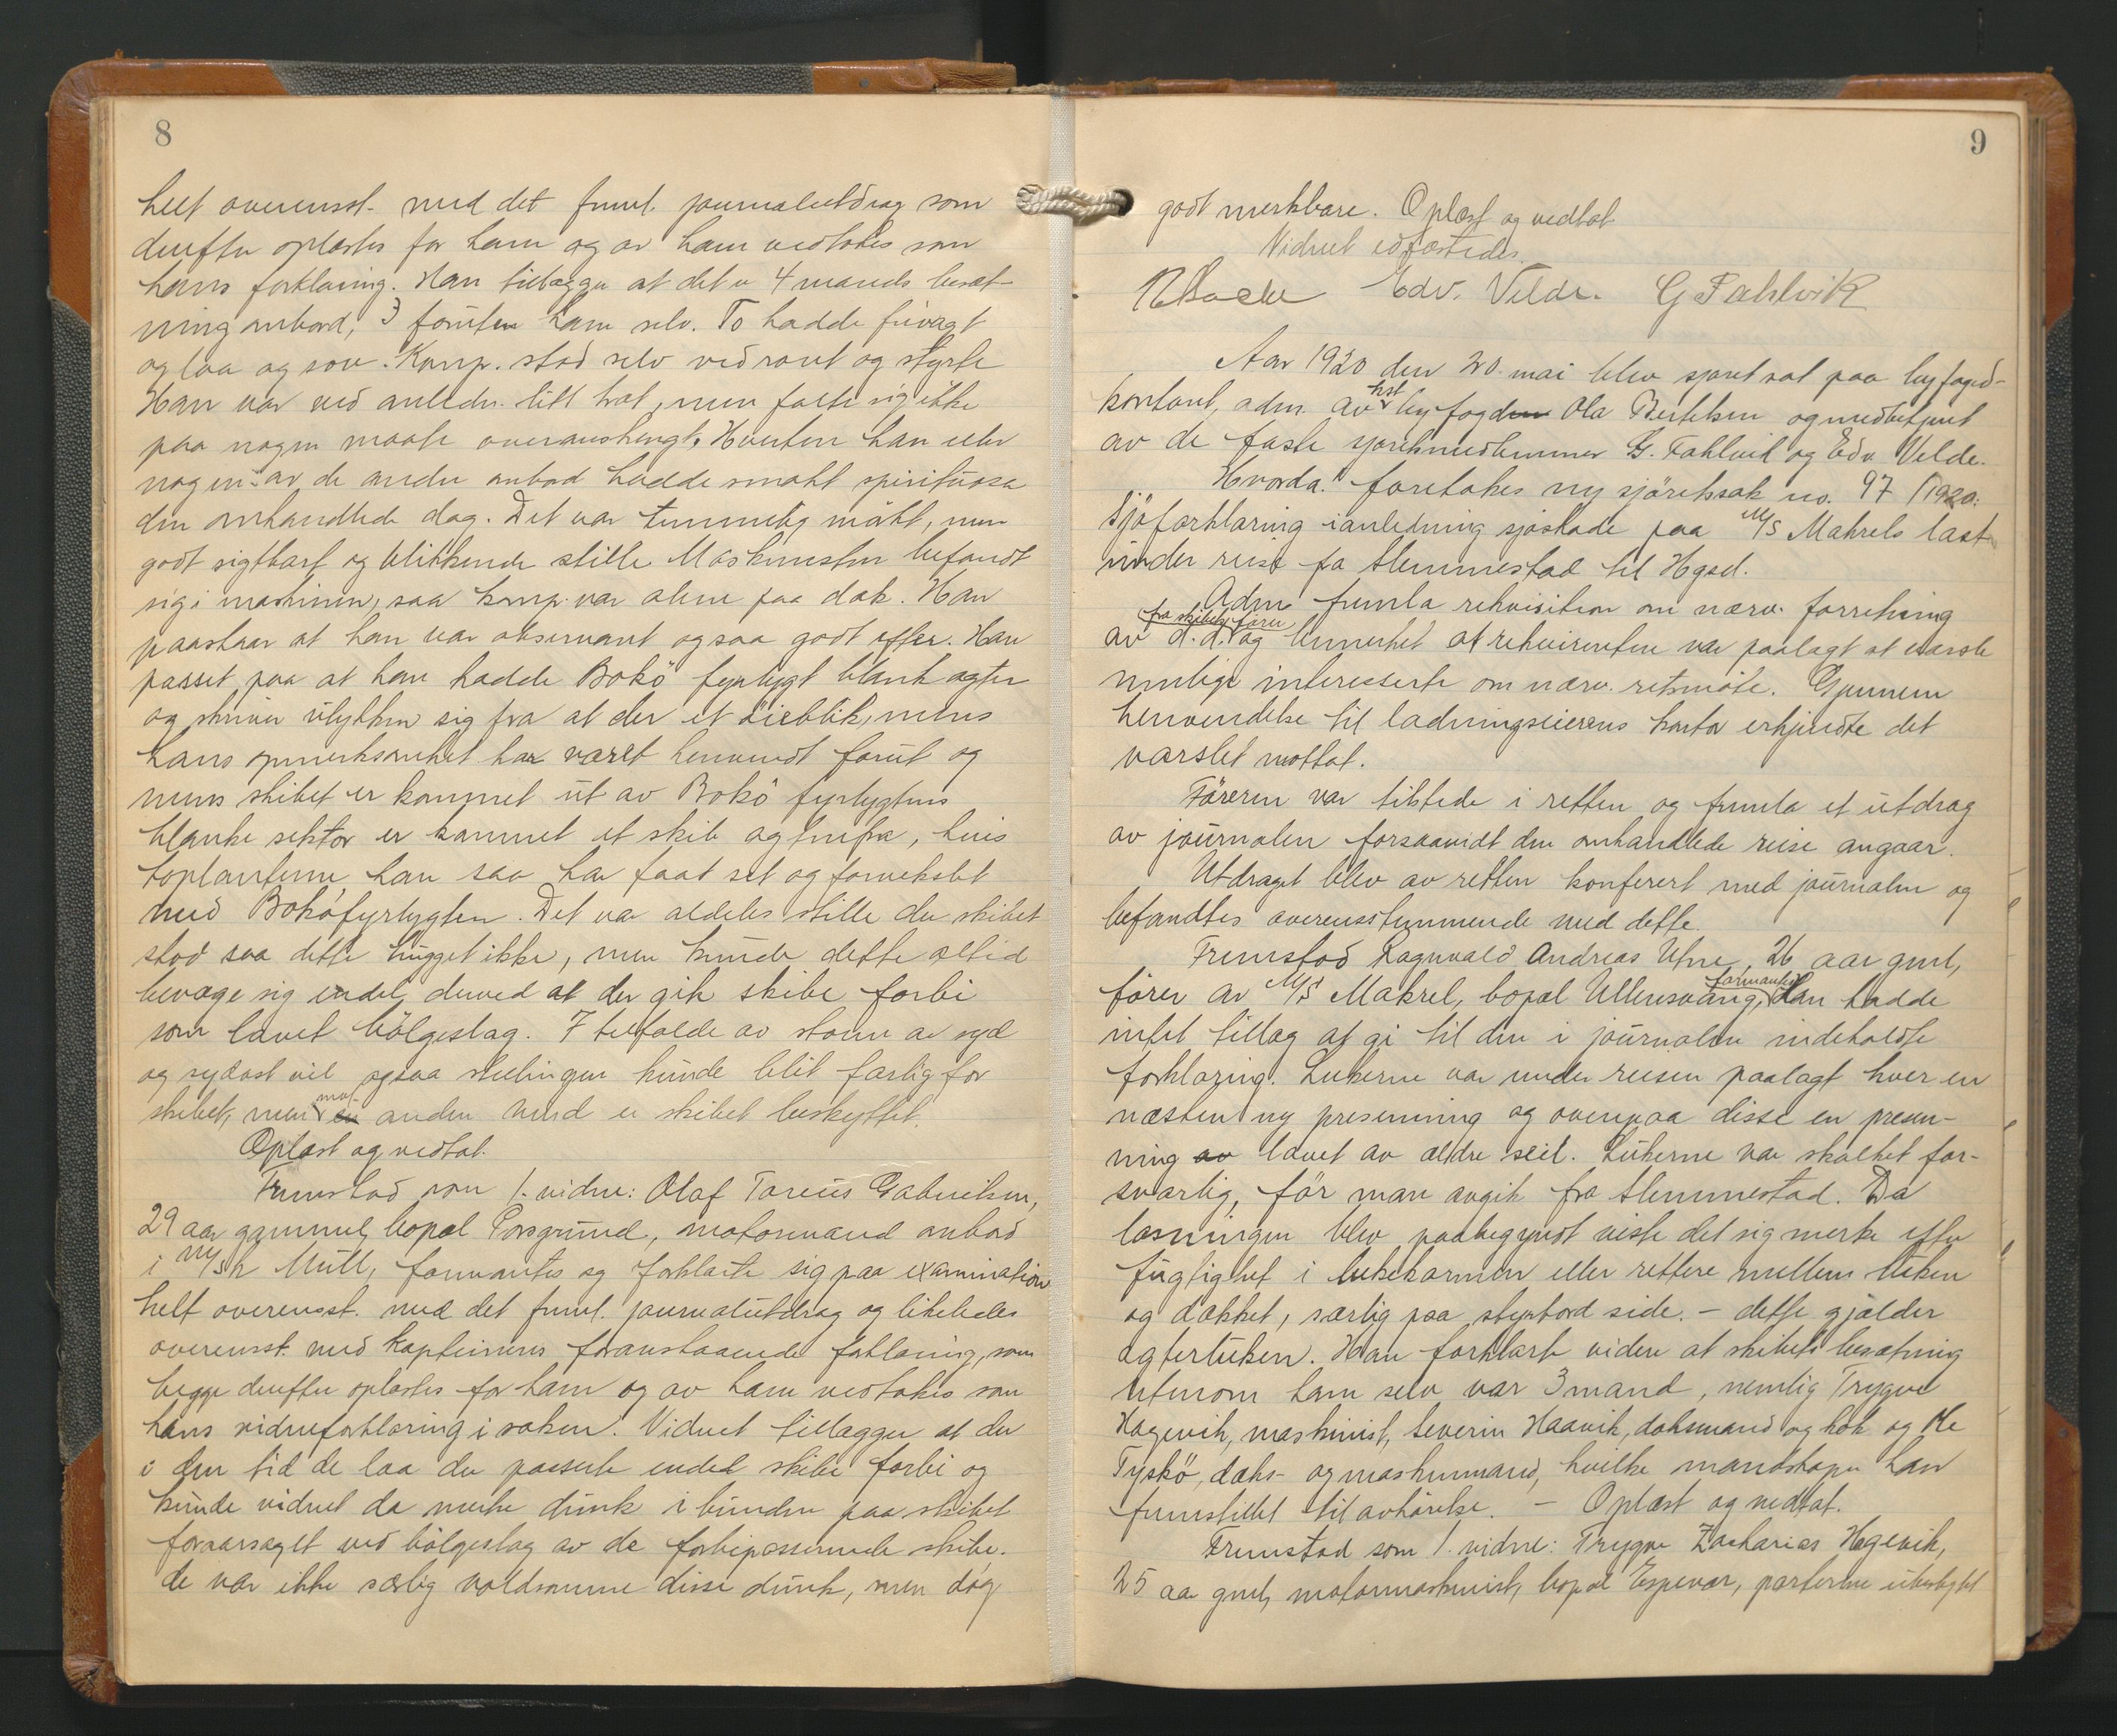 8
helt overensst. med det freml. journalutdrag som
derefter oplæstes for ham og av ham vedtokes som
hans forklaring. Han tilægger at det er 4 mands besæt-
ning ombord, 3 foruten ham selv. To hadde frivagt
og laa og sov. Komp. stod selv ved roret og styrte
Han var ved anledn. litt træt, men følte sig ikke
paa nogen maate overanstrengt. Hverken han eller
nogen av de andre ombord hadde smakt spirituosa
den omhandlede dag. Det var temmelig mørkt, men
godt sigtbart og blikkende stille. Maskinisten befandt
sig i maskinen, saa komp. var alene paa dæk. Han
paastaar at han var observant og saa godt efter. Han
passet paa at han hadde Bokö fyrlygt blank agter
og skriver ulykken sig fra at der et øieblik, mens
hans opmerksomhet har været henvendt forut og
mens skibet er kommet ut av Bokö fyrlygtens
blanke sektor er kommet et skib agtenfra, hvis
toplanterne han saa har faat set og forvekslet
med Bokö fyrlygten. Det var aldeles stille der skibet
stod saa dette hugget ikke, men kunde dette altid
bevæge sig endel derved at der gik skibe forbi
som lavet bölgeslag. I tilfælde av storm av syd
og sydost vil ogsaa stillingen kunde blit farlig for
skibet, men mot anden vind er skibet beskyttet.
Oplæst og vedtat.
Fremstod som 1. vidne: Olaf Torius Gabrielsen,
29 aar gammel, bopæl Porsgrund, motormand ombord
i M/Sk Mull, formantes og forklarte sig paa examination
helt overensst. med det freml. journalutdrag og likeledes
overensst. med kapteinens foranstaaende forklaring, som
begge derefter oplæstes for ham og av ham vedtokes som
hans vidneforklaring i saken. Vidnet tillægger at der
i den tid de laa der passerte endel skibe forbi og
kunde vidnet da merke dunk i bunden paa skibet
foraarsaget ved bölgeslag av de forbipasserende skibe.
de var ikke særlig voldsomme disse dunk, men dog
9
godt merkbare. Oplæst og vedtat
Vidnet edfæstedes.
Edv. Velde. G Fahlvik
Aar 1920 den 20. mai blev sjøret sat paa byfoged-
kontoret, adm. av kst byfogd Ola Bertelsen og medbetjent
av de faste sjøretsmedlemmer G. Fahlvik og Edv. Velde.
Hvorda: foretokes ny sjöretssak no. 97 / 1920.
Sjöforklaring i anledning sjøskade paa M/S Makrels last
under reise fra Slemmestad til Hgsd.
Adm fremla rekvisition om nærv. forretning
av d.d. fra skibets förer og bemerket at rekvirenten var paalagt at varsle
mulige interesserte om nærv. retsmøte. Gjennem
henvendelse til ladningseierens kontor erkjendte det
varslet mottat.
Föreren var tilstede i retten og fremla et utdrag
av journalen forsaavidt den omhandlede reise angaar.
Utdraget blev av retten konferert med journalen og
befandtes overensstemmende med dette.
Fremstod Ragnvald Andreas Utne, 26 aar gml,
förer av M/S Makrel, bopæl Ullensvang, formantes. Han hadde
intet tillæg at gi til den i journalen indeholdte
forklaring. Lukerne var under reisen paalagt hver en
næsten ny presenning og ovenpaa disse en presen-
ning lavet av ældre seil. Lukerne var skalket for-
svarlig, før man avgik fra Slemmestad. Da
losningen blev paabegyndt viste det sig merke efter
fugtighet i lukekarmen eller rettere mellem luken
og dækket, særlig paa styrbord side. – dette gjælder
agterluken. Han forklarte videre at skibets besætning
utenom ham selv var 3 mand, nemlig Trygve
Hagevik, maskinist, Severin Haavik, dæksmand og kok og Ole
Tyskö, dæks- og maskinmand, hvilke mandskaper han
fremstillet til avhörelse. – Oplæst og vedtat.
Fremstod som 1. vidne: Trygve Zacharias Hagevik,
25 aar gml, motormaskinist, bopæl Espevær, parterne ubeslegtet